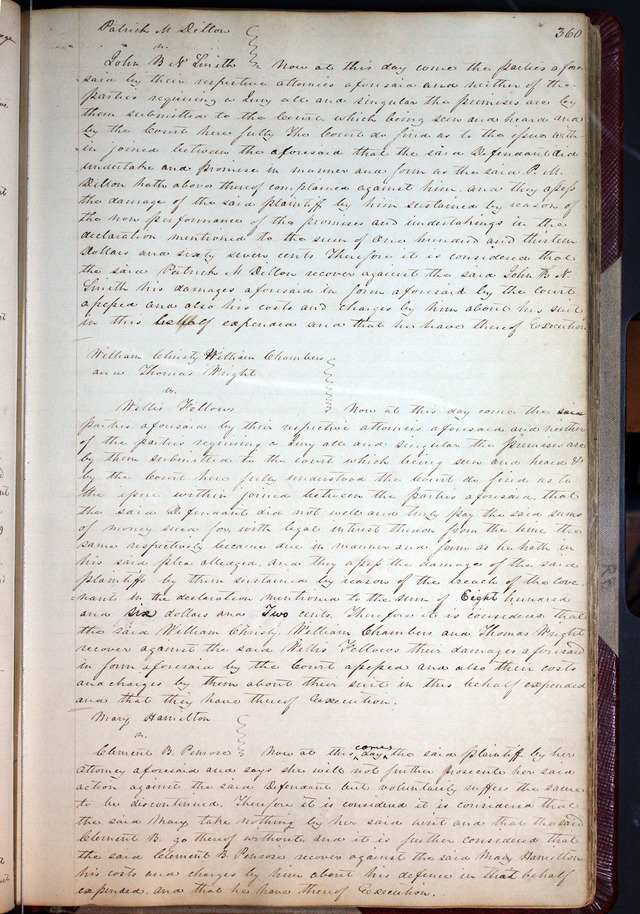 360
Patrick M Dillon
vs.
John B N Smith Now at this day come the parties afore
said by their respective attornies aforesaid and neither of the
parties requiring a Jury all and singular the premises are by
them submitted to the Court, which being seen and heard and
by the Court here fully The Court do find as to the issue with
in joined between the aforesaid that the said Defendant did
undertake and promise in manner and form as the said P. M.
Dillon hath above thereof complained against him, and they assess
the damage of the said plaintiff by him sustained by reason of
the non performance of the promises and undertakings in the
declaration mentioned to the sum of One hundred and thirteen
Dollars and sixty seven cents Therefore it is considered that
the said Patrick M Dillon recover against the said John B N
Smith his damages aforesaid in form aforesaid by the court
assessed and also his costs and charges by him about his suit
in this behalf expended and that he have thereof Execution
William Christy William Chambers
and Thomas Wright
vs.
Willis Fellows Now at this day come the said
parties aforesaid by their respective attornies aforesaid and neither
of the parties requiring a Jury all and singular the premises are
by them submitted to the court which being seen and heard &
by the Court here fully understood the Court do find as to
the issue within joined between the parties aforesaid that
the said Defendant did not well and truly pay the said sums
of money sued for, with legal interest thereon from the time the
same respectively became due in manner and form as he hath in
his said plea alledged. And they assess the damages of the said
plaintiffs by them sustained by reason of the breach of the cove
nant in the declaration mentioned to the sum of Eight hundred
and six dollars and Two cents. Therefore it is considered that
the said William Christy, William Chambers and Thomas Wright
recover against the said Willis Fellows their damages aforesaid
in form aforesaid by the Court assessed and also their costs
and charges by them about their suit in this behalf expended
and that they have thereof Execution.
Mary Hamilton
vs.
Clement B. Penrose Now at this day come the said plaintiff by her
attorney aforesaid and says she will not further prosecute her said
action against the said Defendant but voluntarily suffers the same
to be discontinued. Therefore it is considered it is considered that
the said Mary, take nothing by her said writ and that the said
Clement B. go thereof without and it is further considered that
the said Clement B. Penrose recover against the said Mary Hamilton
his costs and charges by him about his defence in that behalf
expended, and that he have thereof Execution.